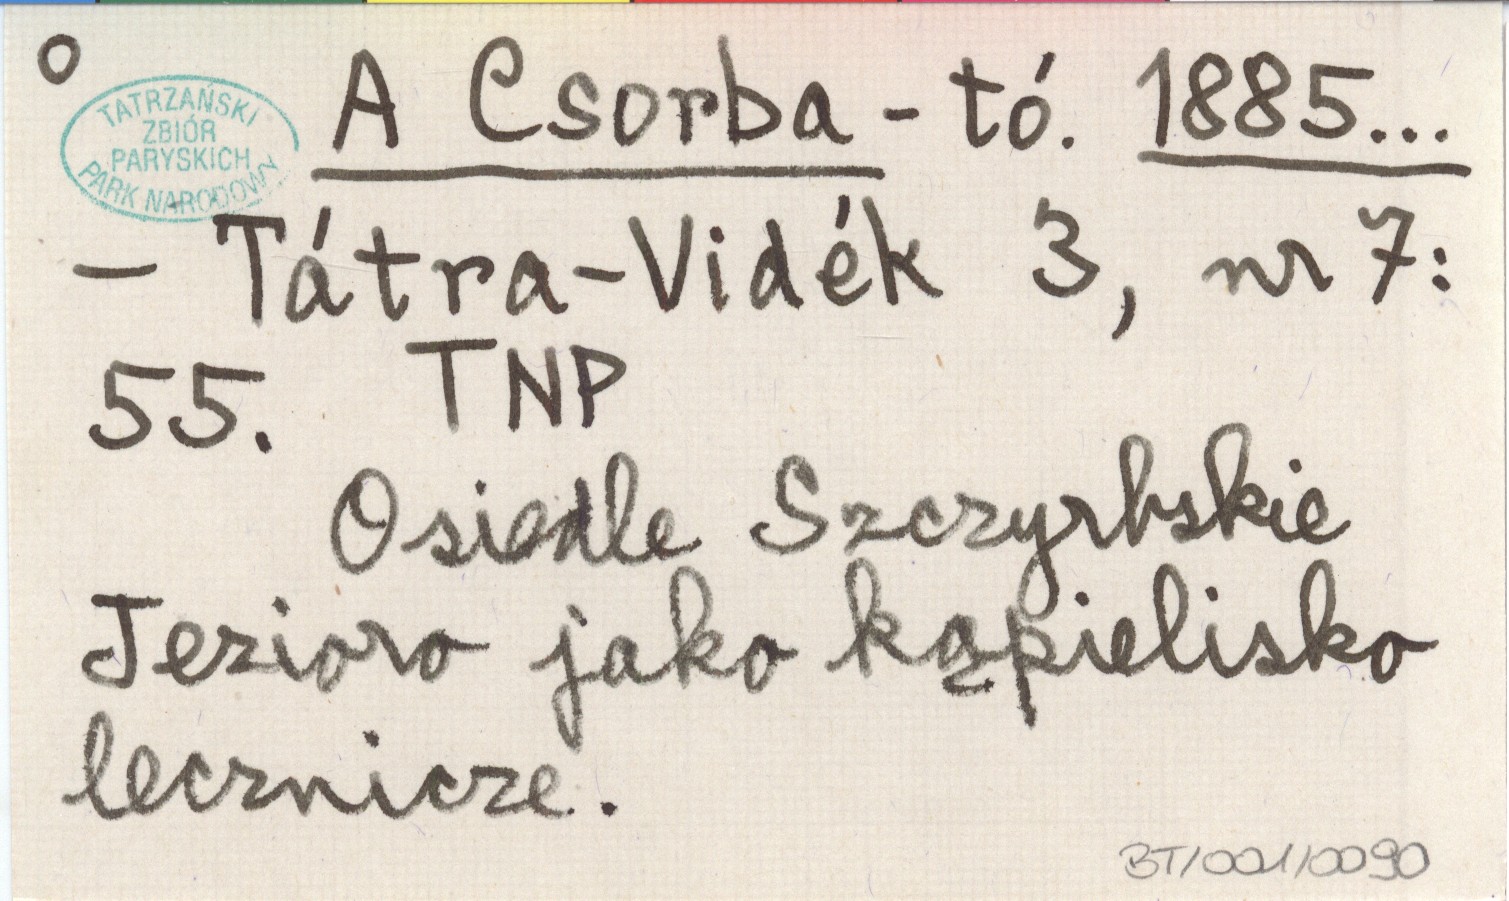 o
TATRZAŃSKI
ZBIÓR
PARYSKICH
PARK NARODOWY
A Csorba-tó. 1885...
– Tátra-Vidék 3, nr 7:
55. TNP
Osiedle Szczyrbskie
Jezioro jako kąpielisko
lecznicze.
BT/001/0090